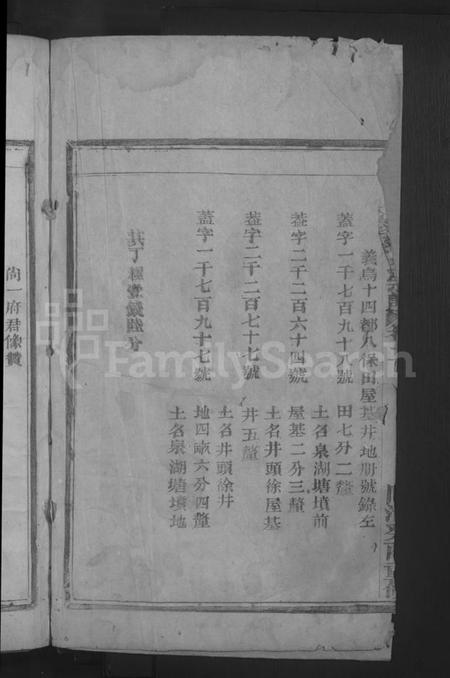 義烏十四都八保田屋基井地册號錄左
蓋字一千七百九十八號 田七分二釐
土名泉湖塘墳前
蓋字二千二百六十四號 屋基二分三釐
土名井頭徐屋基
蓋字二千二百七十七號 井五釐
土名井頭徐井
蓋字一千七百九十七號 地四畝六分四釐
土名泉湖塘墳地
共丁糧壹錢陸分
尚一府君像贊
FamilySearch